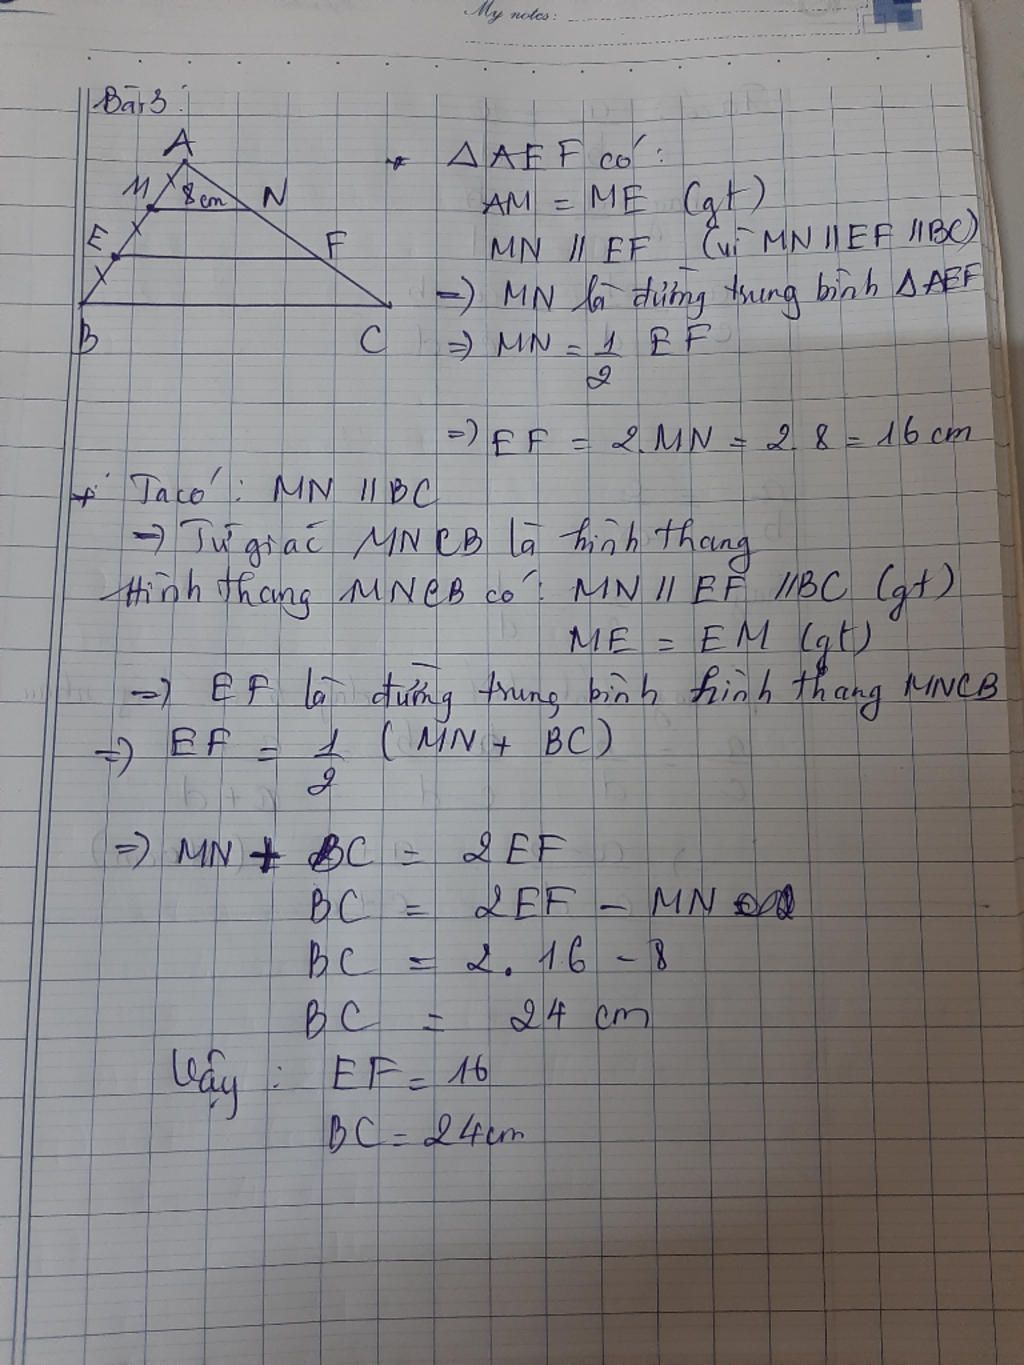 My notes:
Bài 3:
A
M
8cm
N
E
F
B
C
* △AEF có:
AM = ME (gt)
MN // EF (vì MN // EF // BC)
=> MN là đường trung bình △AEF
=> MN = 1/2 EF
=> EF = 2.MN = 2.8 = 16 cm
+ Ta có: MN // BC
=> Tứ giác MNCB là hình thang
Hình thang MNCB có: MN // EF // BC (gt)
ME = EM (gt)
=> EF là đường trung bình hình thang MNCB
=> EF = 1/2 (MN + BC)
=> MN + BC = 2EF
BC = 2EF - MN
BC = 2.16 - 8
BC = 24 cm
Vậy: EF = 16
BC = 24cm